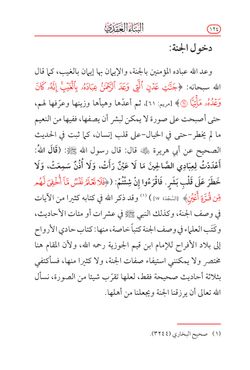 ١٢٤
البناء العقدي
دخول الجنة:
وعد الله عباده المؤمنين بالجنة، والإيمان بها إيمان بالغيب، كما قال
الله سبحانه: ﴿جَنَّٰتِ عَدْنٍ ٱلَّتِى وَعَدَ ٱلرَّحْمَٰنُ عِبَادَهُۥ بِٱلْغَيْبِ إِنَّهُۥ كَانَ
وَعْدُهُۥ مَأْتِيًّا ۝٦١﴾ [مريم: ٦١]، ثم أعدها وهيأها وزينها وعرَّفها لهم،
حتى أصبحت على صورة لا يمكن لبشر أن يصفها، ففيها من النعيم
ما لم يخطر-حتى في الخيال-على قلب إنسان، كما ثبت في الحديث
الصحيح عن أبي هريرة ﵁ قال: قال رسول الله ﷺ: (قَالَ اللَّهُ:
أَعْدَدْتُ لِعِبَادِي الصَّالِحِينَ مَا لَا عَيْنٌ رَأَتْ، وَلَا أُذُنٌ سَمِعَتْ، وَلَا
خَطَرَ عَلَى قَلْبِ بَشَرٍ. فَاقْرَءُوا إِنْ شِئْتُمْ: ﴿فَلَا تَعْلَمُ نَفْسٌ مَّآ أُخْفِىَ لَهُم
مِّن قُرَّةِ أَعْيُنٍ﴾ [السجدة: ١٧] )(١) وقد ذكر الله في كتابه كثيرا من الآيات
في وصف الجنة، وكذلك النبي ﷺ في عشرات أو مئات الأحاديث،
وكتب العلماء في وصف الجنة كتباً خاصة، منها: كتاب حادي الأرواح
إلى بلاد الأفراح للإمام ابن قيم الجوزية رحمه الله، ولأن المقام هنا
مختصر ولا يمكنني استيفاء صفات الجنة، ولا كثيرا منها، فسأكتفي
بثلاثة أحاديث صحيحة فقط، لعلها تقرّب شيئا من الصورة، نسأل
الله تعالى أن يرزقنا الجنة ويجعلنا من أهلها.
(١) صحيح البخاري (٣٢٤٤).